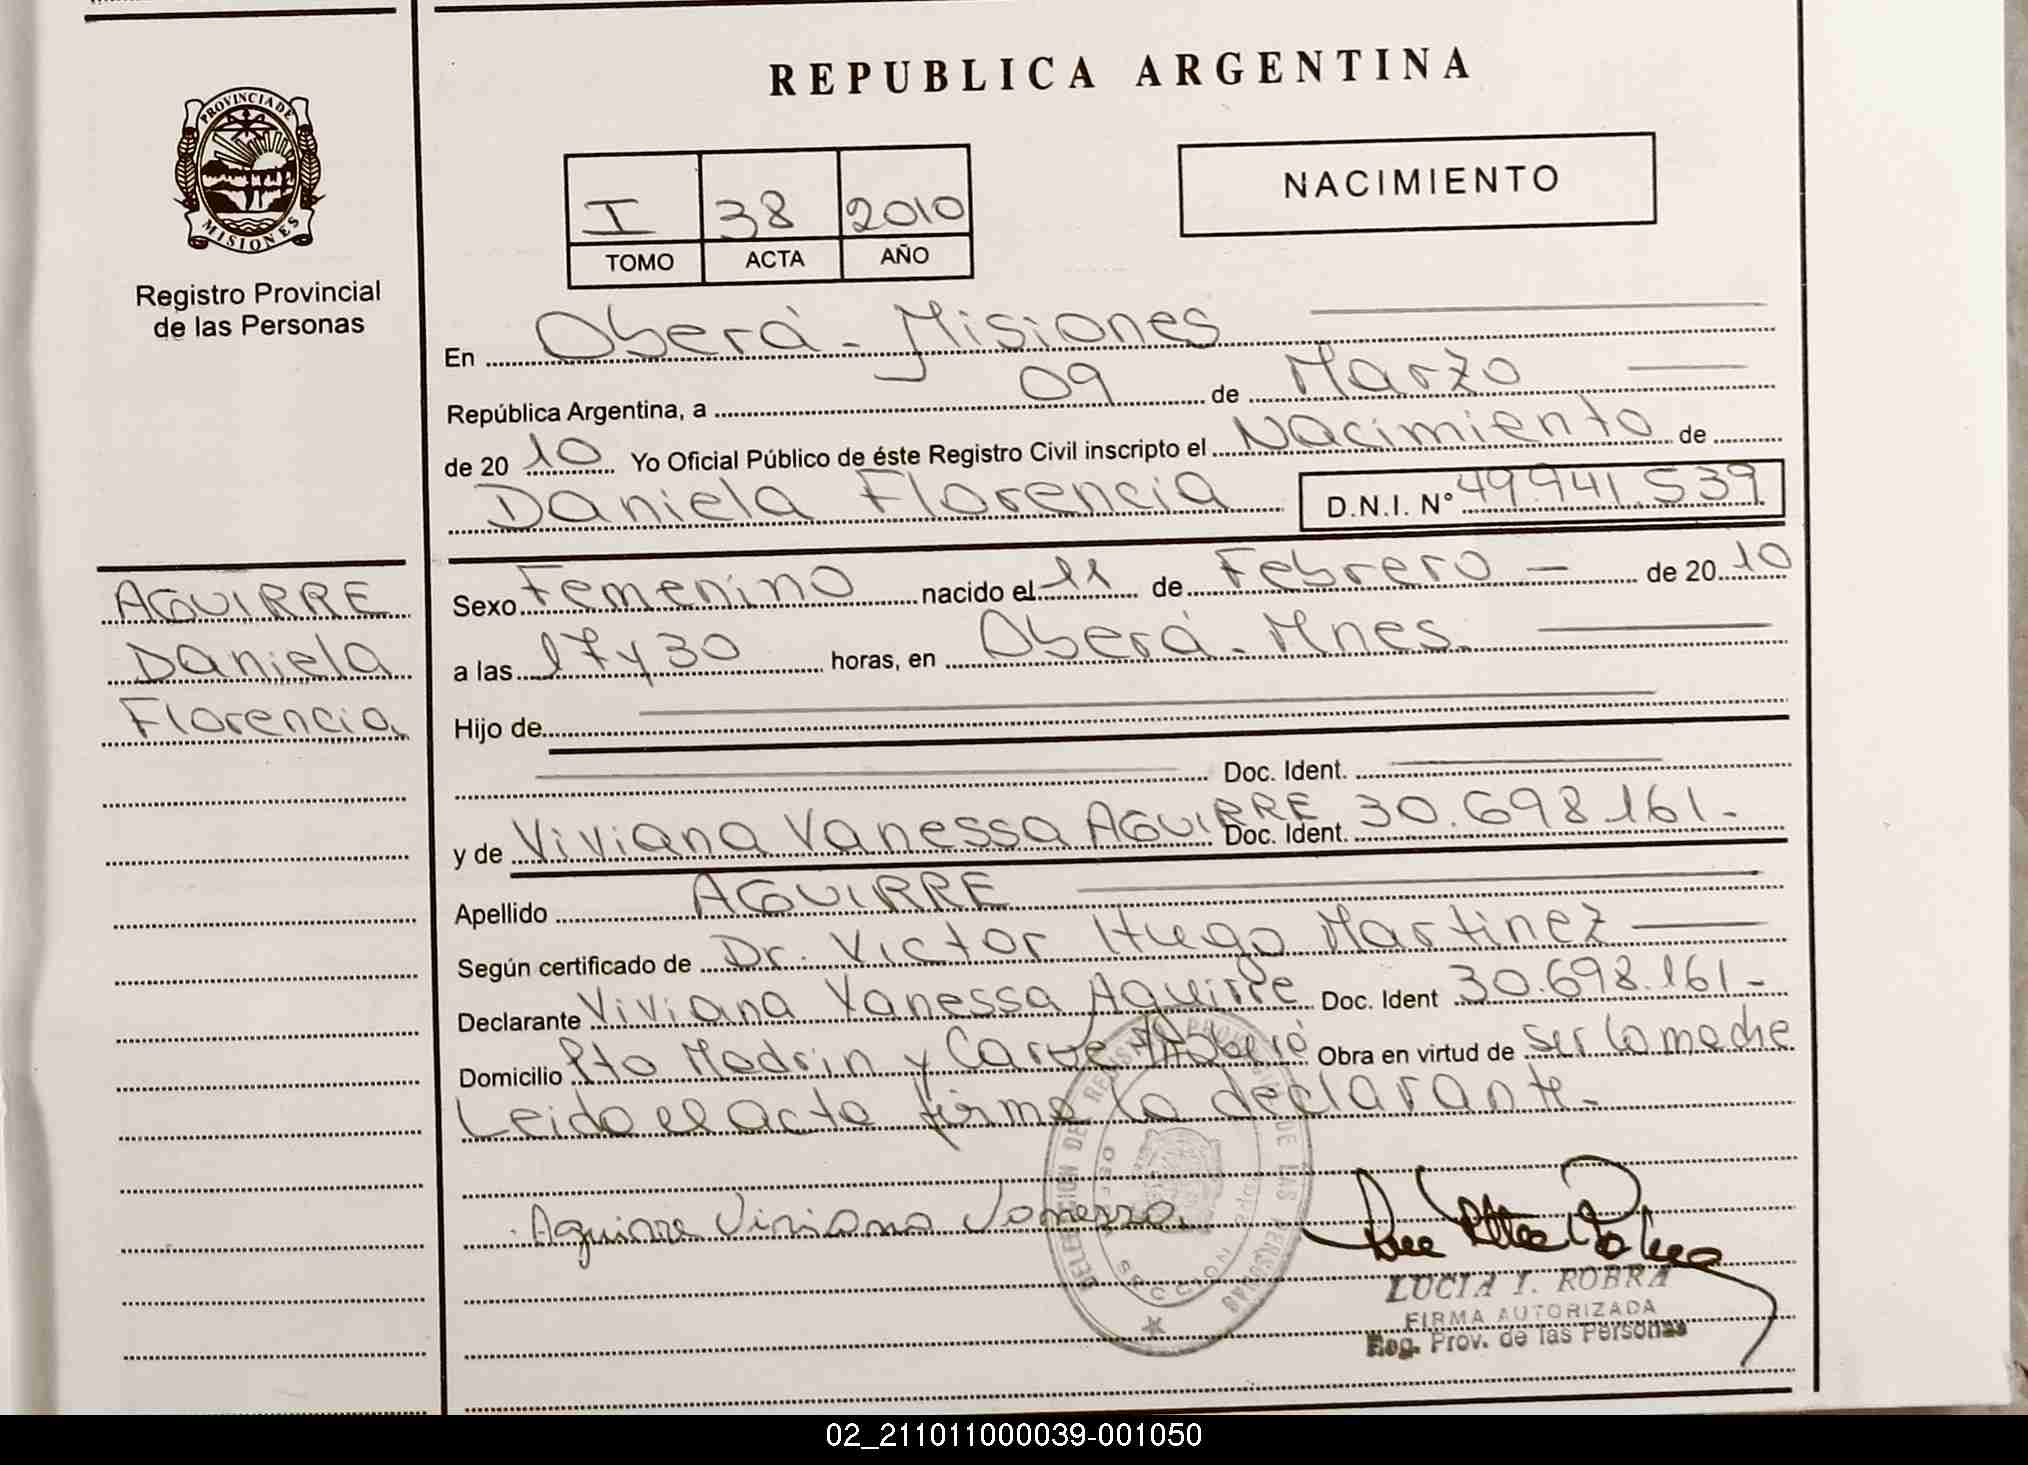 REPUBLICA ARGENTINA
PROVINCIA DE
MISIONES
Registro Provincial
de las Personas
I 38 2010
TOMO ACTA AÑO
NACIMIENTO
En Oberá - Misiones
República Argentina, a 09 de Marzo
de 20 10 Yo Oficial Público de éste Registro Civil inscripto el Nacimiento de
Daniela Florencia D.N.I. Nº 49.941.539
AGUIRRE
Daniela
Florencia
Sexo Femenino nacido el 11 de Febrero - de 20 10
a las 17 y 30 horas, en Oberá - Mnes.
Hijo de
Doc. Ident.
y de Viviana Vanessa AGUIRRE Doc. Ident. 30.698.161-
Apellido AGUIRRE
Según certificado de Dr. Victor Hugo Martinez
Declarante Viviana Vanessa Aguirre Doc. Ident 30.698.161-
Domicilio Pto Madrin y Obra en virtud de ser la madre
Leido el acta firma la declarante.
Aguirre Viviana Vanessa.
DELEGACION DE REGISTRO PROVINCIAL DE LAS PERSONAS
LUCIA I. ROBRA
FIRMA AUTORIZADA
Reg. Prov. de las Personas
02_211011000039-001050